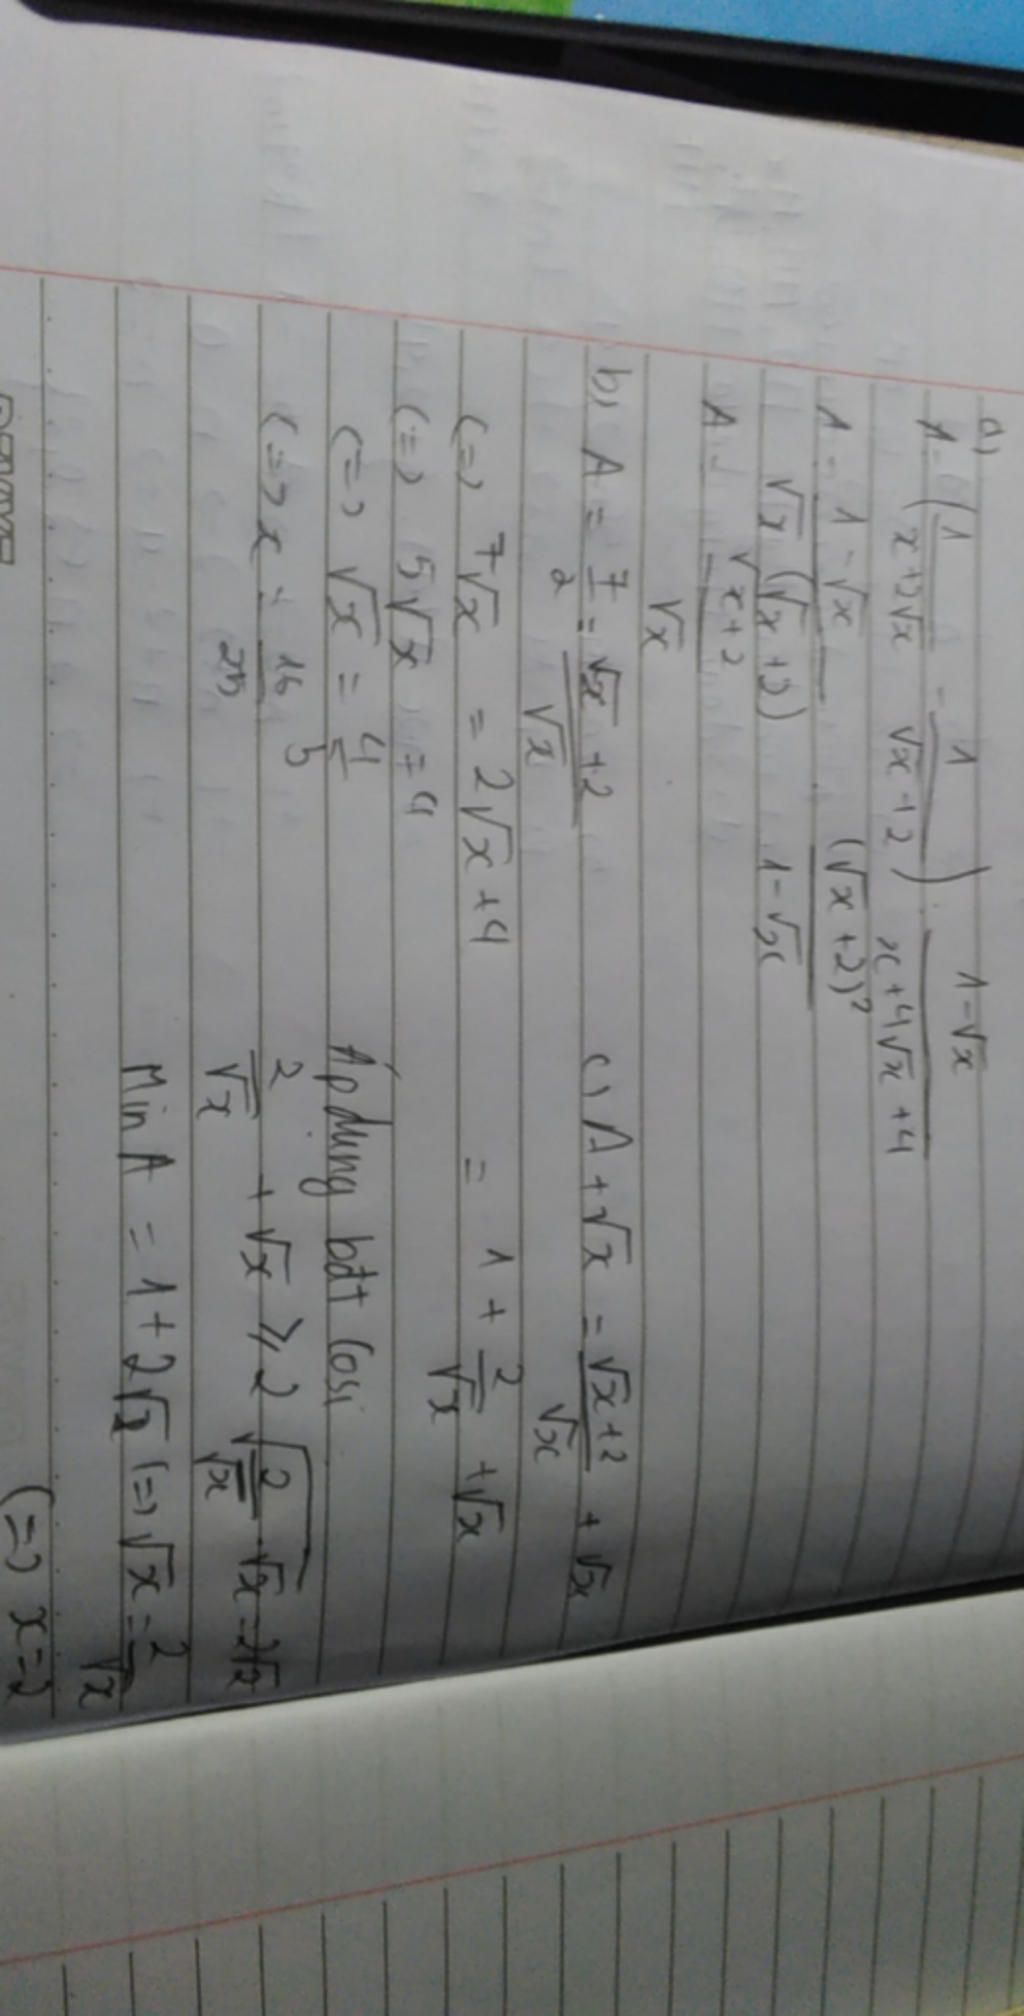 a)
A = (1/(x+2√x) - 1/(√x+2)) : (1-√x)/(x+4√x+4)
A = (1-√x)/(√x(√x+2)) · (√x+2)²/(1-√x)
A = (√x+2)/√x
b) A = 7/2 = (√x+2)/√x
(=) 7√x = 2√x+4
(=) 5√x = 4
(=) √x = 4/5
(=) x = 16/25
c) A + √x = (√x+2)/√x + √x
= 1 + 2/√x + √x
Áp dụng bđt Cosi
2/√x + √x ≥ 2√(2/√x · √x) = 2√2
Min A = 1+2√2 (=) √x = 2/√x
(=) x=2